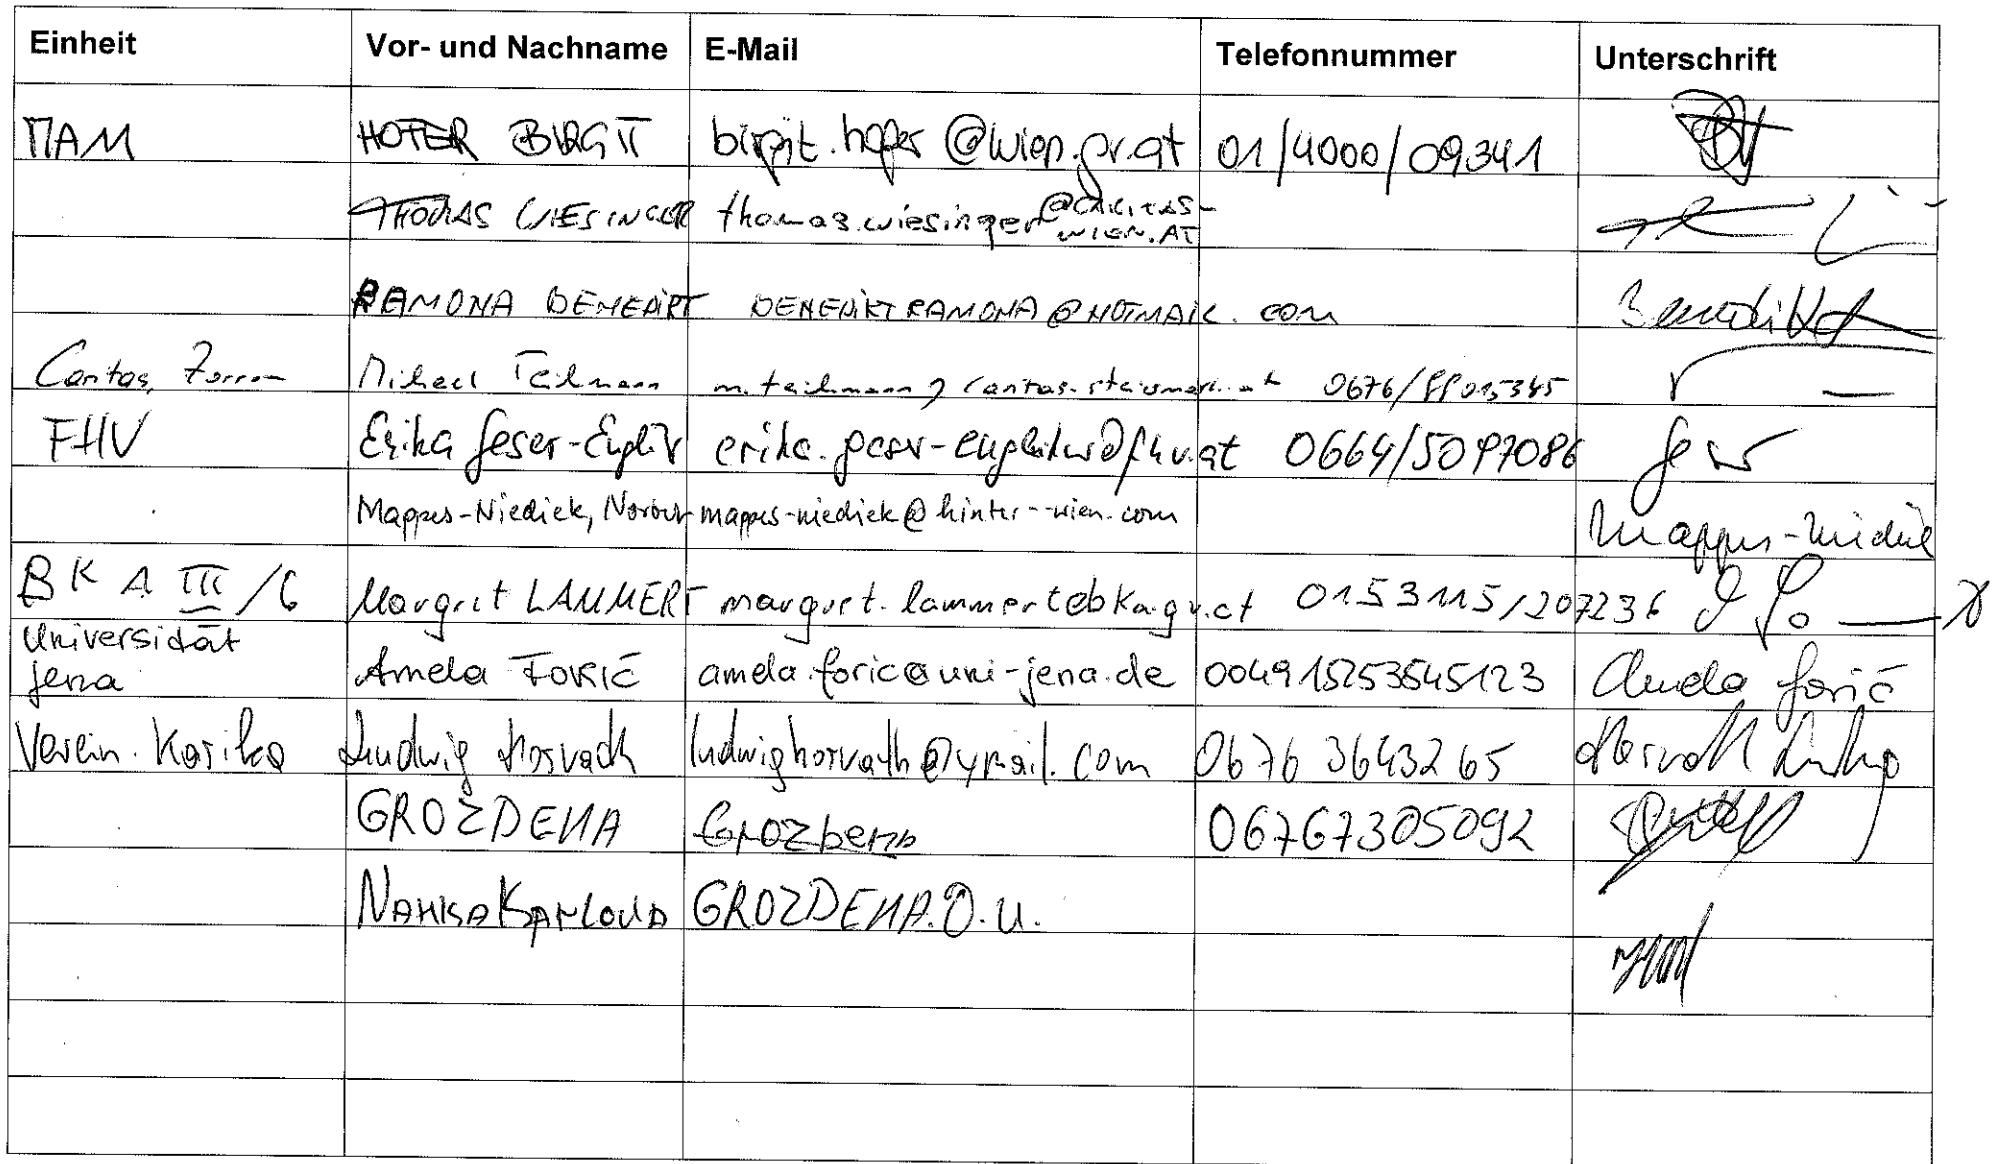 Einheit Vor- und Nachname E-Mail Telefonnummer Unterschrift
MAM HOFER BIRGIT birgit.hofer@wien.gv.at 01/4000/09341
THOMAS WIESINGER thomas.wiesinger@CARITAS-
WIEN.AT
RAMONA BENEDIKT BENEDIKTRAMONA@HOTMAIL.com Benedikt
Caritas, Michael Teichmann 0676/88015345
FHV Erika Geser-Engleitner erika.geser-engleitner@fhv.at 0664/5097086 Geser
Mappes-Niediek, Norbert mappes-niediek@hinter-wien.com Mappes-Niediek
BKA III/6 Margrit LAMMERT margrit.lammert@bka.gv.at 0153115/207236
Universität
Jena Amela FORIĆ amela.foric@uni-jena.de 004915253545123 Amela Forić
Verein Karika Ludwig Horvath ludwighorvath@ymail.com 0676 3643265 Horvath Ludwig
GROZDENA Grozdena 06767305092
GROZDENA.O.U.